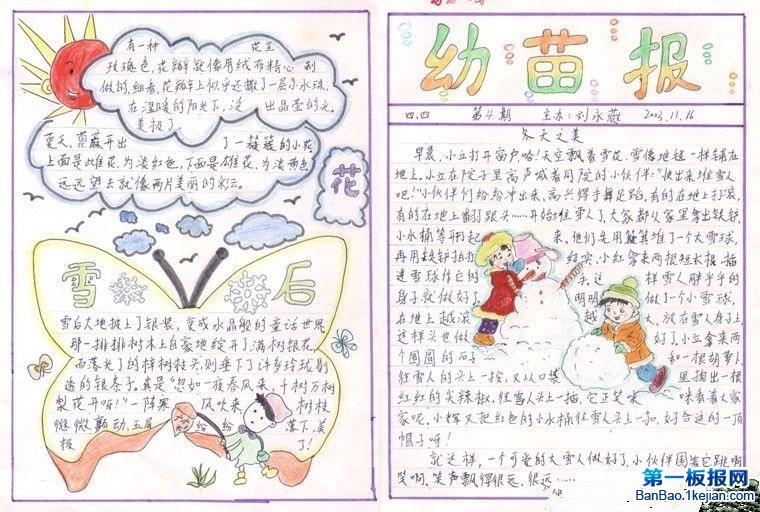 有一种 花呈
玫瑰色,花瓣就像用绒布精心 制
做的,细看,花瓣上似乎还撒了一层小水珠,
在温暖的阳光下,泛 出晶莹的光
美极了。
夏天,葛薇开出 了一簇簇的小花,
上面是雌花,为淡红色,下面是雄花,为淡黄色,
远远望去就像两片美丽的彩云。
花
雪后
雪后大地披上了银装,变成水晶般的童话世界
那一排排树木上自豪地绽开了满树银花,
而落光了的梓树枝头,则垂下了许多玲珑剔
透的银条子。真是“忽如一夜春风来,千树万树
梨花开呀!”一阵寒 风吹来 树枝
微微颤动,玉屑 纷纷 落下,美
极 了!
幼苗报
四.四 第4期 主办:刘永薇 2003.11.16
冬天之美
早晨,小立打开窗户哈!天空飘着雪花,雪像地毯一样铺在
地上,小立在院子里高声喊着同院的小伙伴:“快出来堆雪人
吧!”小伙伴们纷纷冲出来,高兴得手舞足蹈,有的在地上打滚,
有的在地上翻跟头……开始堆雪人了,大家都从家里拿出铁锨
小水桶等工具 来。他们先用簸箕堆了一个大雪球,
再用铁锨拍 结实,小红拿来两根短木棍,插
进雪球作它的 手,这 样雪人胖乎乎的
身子就做好了 明明 做了一个小雪球,
在地上越滚 越 大,放在雪人身子上
这样头也做 好了小立拿来两
个圆圆的石子 和一根胡萝卜
往雪人的头上一按,又从口袋 里掏出一根
红红的尖辣椒,往雪人头上一插,它正笑咪 咪看着大家
家呢,小辉又把红色的小水桶往雪人头上一扣,好合适的一顶
帽子呀!
就这样,一个可爱的大雪人做好了,小伙伴围着它跳啊
笑啊,笑声飘得很远,很远……
第一板报网
BanBao.1kejian.com